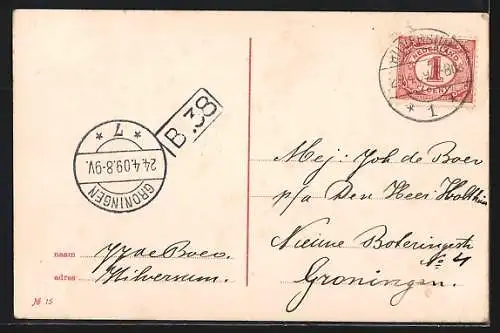 HILVERSUM
NEDERLAND
1
CENT
* 1 *
B 38
* 7 *
24.4.09.8-9V.
GRONINGEN
Mej: Joh de Boer
p/a Den Heer
Nieuwe Boteringestr
No 4
Groningen.
naam de Boer.
adres Hilversum.
№ 15